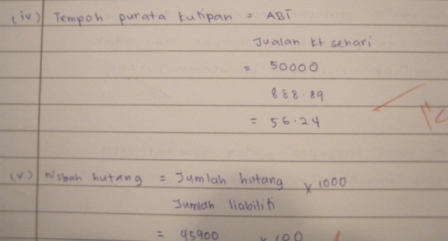 (iv) Tempoh purata kutipan = ABT
Jualan kt sehari
= 50000
888.89
= 56.24
(v) Nisbah hutang = Jumlah hutang × 1000
Jumlah liabiliti
= 45900 × 100